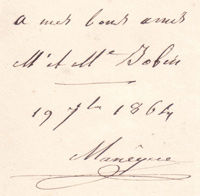 a mes bons amis
Mr et Me Gobin
19 7bre 1864
Manèque